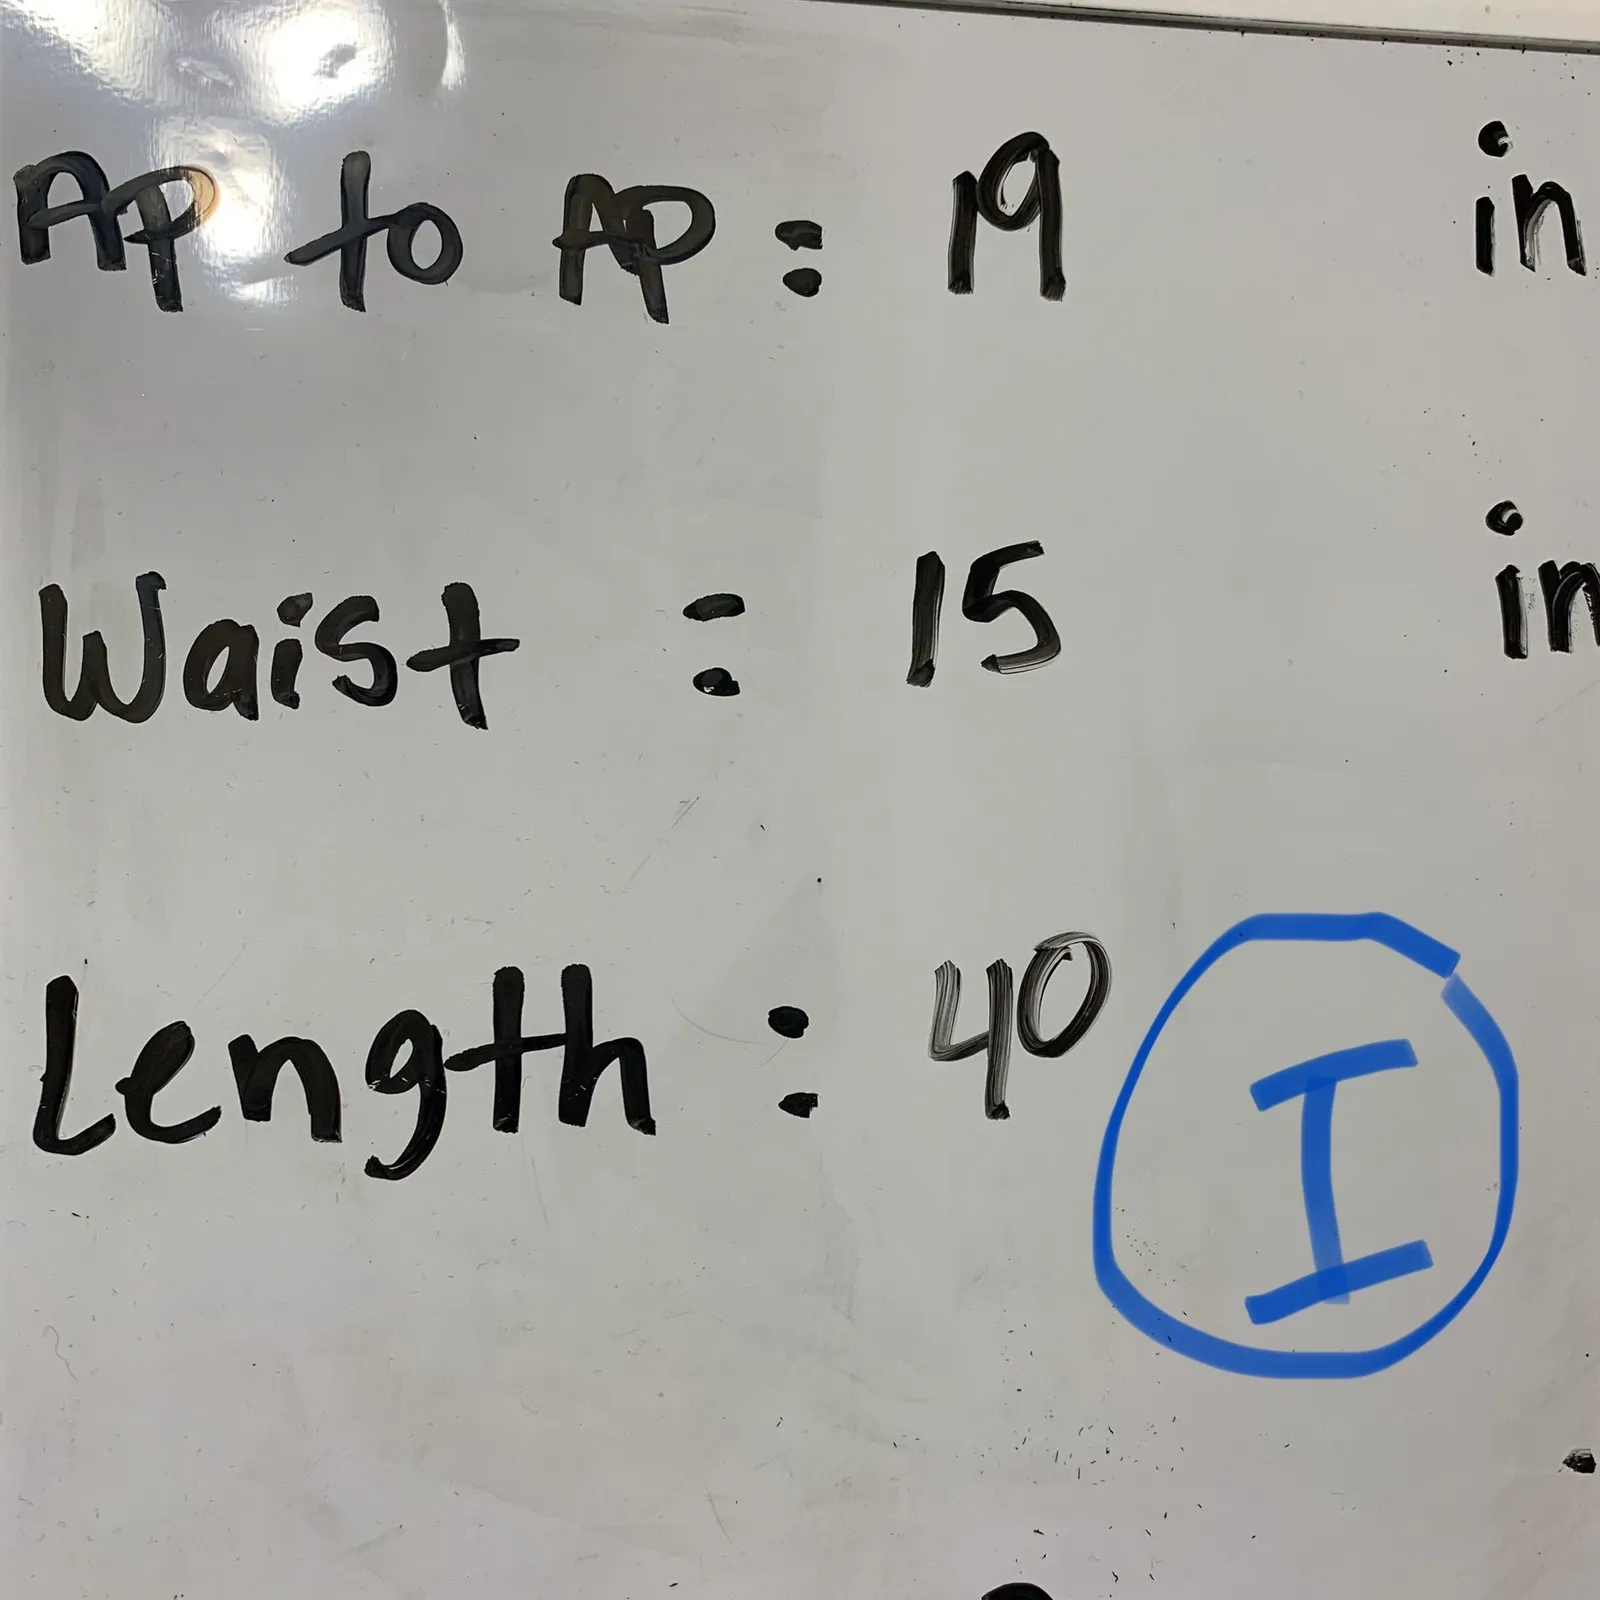 AP to AP: 19 in
Waist : 15 in
Length : 40
I